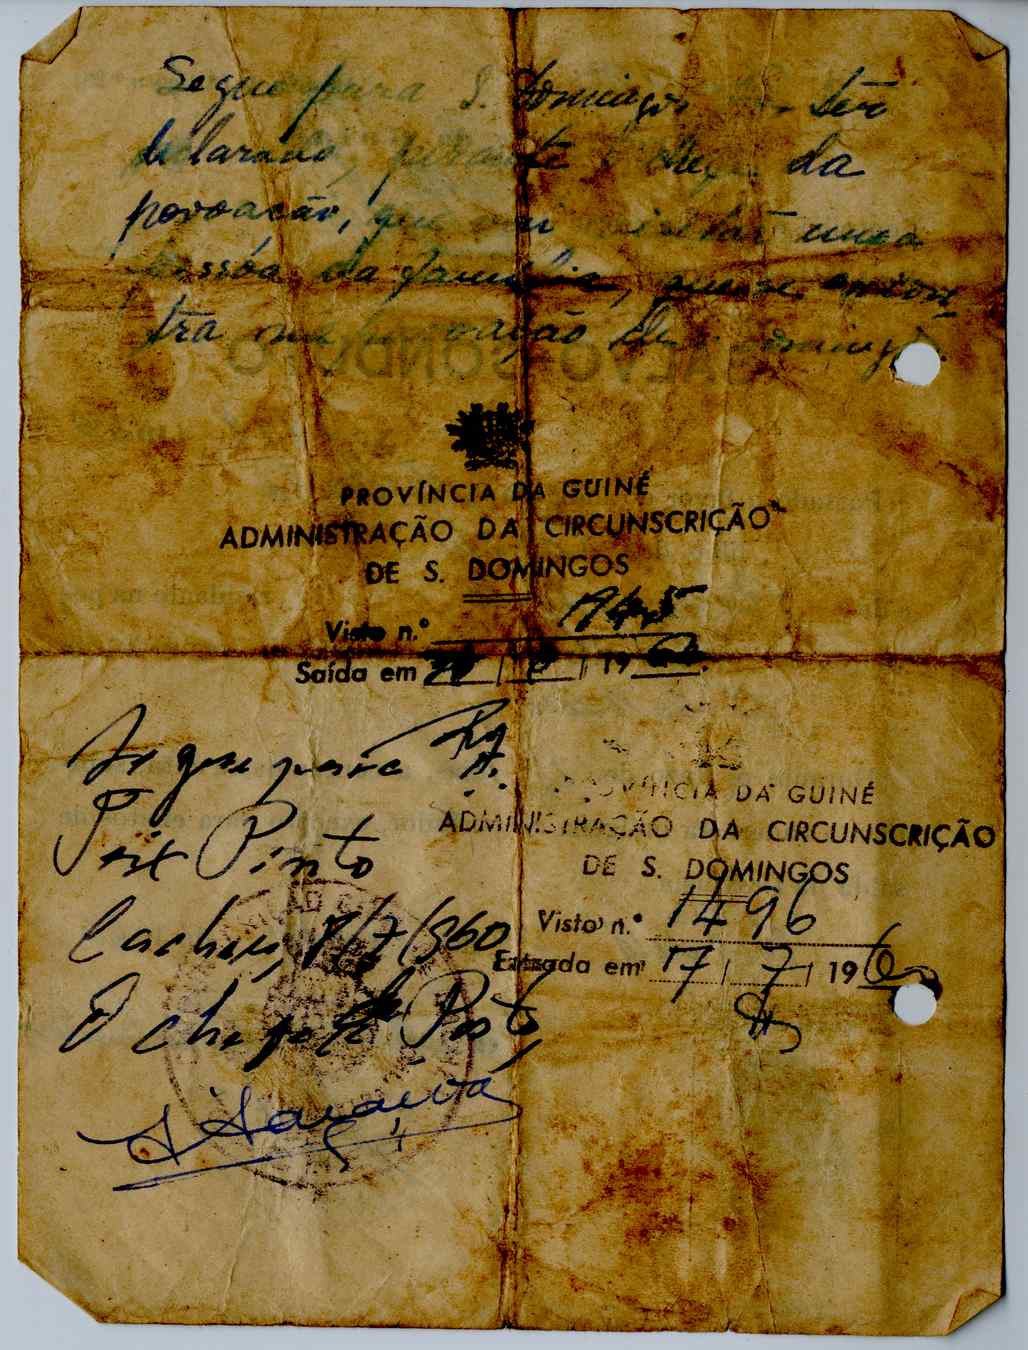 Segue para S. Domingos ter
declarado, perante o chefe da
povoação, que vai visitar uma
pessôa da familia, que se encon-
tra na povoação de S. Domingos.
SALVO-CONDUTO
PROVÍNCIA DA GUINÉ
ADMINISTRAÇÃO DA CIRCUNSCRIÇÃO
DE S. DOMINGOS
Visto n.º 1445
Saída em / / 19
Segue para
Pinto
Cacheu, 8/7/960
O chefe do Posto,
PROVÍNCIA DA GUINÉ
ADMINISTRAÇÃO DA CIRCUNSCRIÇÃO
DE S. DOMINGOS
Visto n.º 1496
Entrada em 17/7/1960